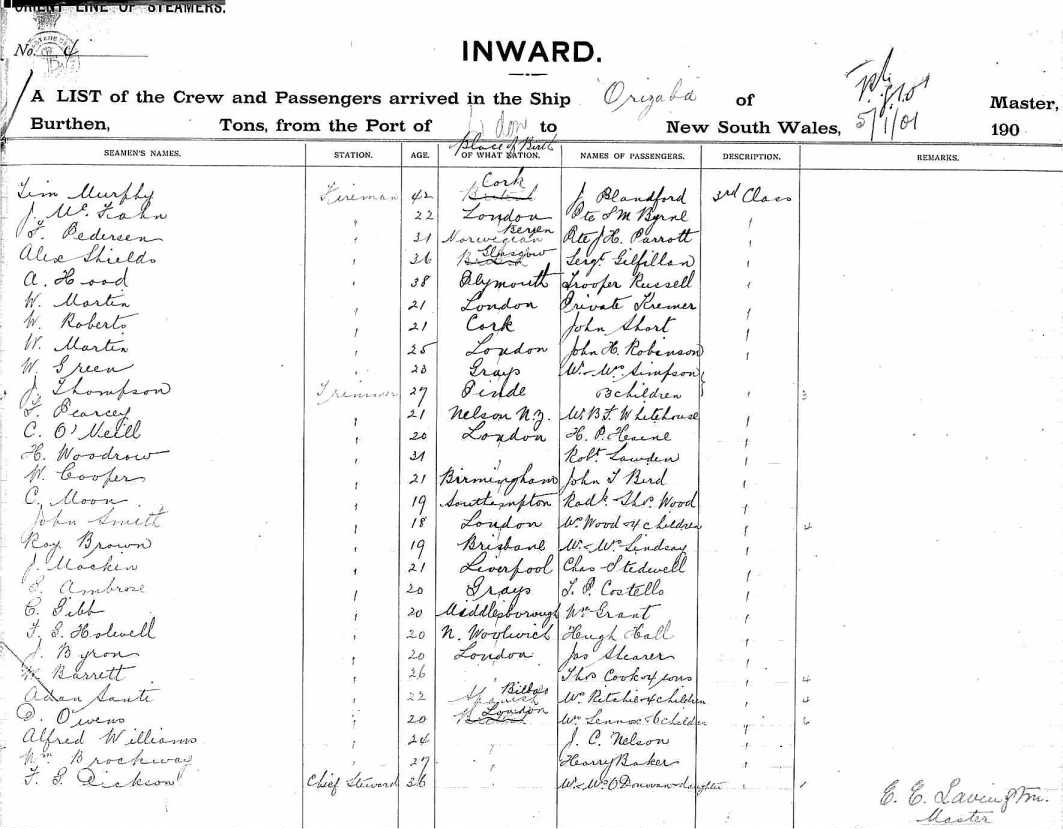 ORIENT LINE OF STEAMERS.
No. 4
INWARD.
A LIST of the Crew and Passengers arrived in the Ship Orizaba of Master,
Burthen, Tons, from the Port of London to New South Wales, 5/1/01 190
Place of Birth
SEAMEN'S NAMES. STATION. AGE. OF WHAT NATION. NAMES OF PASSENGERS. DESCRIPTION. REMARKS.
Tim Murphy Fireman 42 Cork British J Blandford 3rd Class
J. Mc. " 22 London Pte S M Byrne "
F. Pedersen " 31 Norwegian Bergen Pte J H. Parrott "
Alex Shields " 36 British Glasgow Sergt Gilfillan "
A. Hood " 38 Plymouth Trooper Russell "
W. Martin " 21 London Private Kremer "
W. Roberts " 21 Cork John Short "
W. Martin " 25 London John H. Robinson "
W. Green 20 Grays W. & Mrs Simpson
J. Thompson Trimmer 27 3 children " 3
F. Pearcey " 21 Nelson N.Z. Mr B F. Whitehouse "
C. O'Neill " 20 London H. P. Heine "
H. Woodrow " 31 Robt Lawden "
W. Cooper " 21 Birmingham John T Bird "
C. Moon " 19 Southampton Thos. Wood "
John Smith " 18 London Mrs Wood & 4 children " 4
Roy Brown " 19 Brisbane Mr & Mrs Lindsay "
J. Mackin " 21 Liverpool Chas Stedwell "
S. Ambrose " 20 Grays T. P. Costello "
C. Gibb " 20 Middlesborough Wm Grant "
F. S. Holwell " 20 N. Woolwich Hugh Hall "
J. Byron " 20 London Jas Shearer "
W. Barrett " 26 Thos Cook & 4 sons " 4
Adan Santi " 22 Spanish Bilbao Mrs Ritchie & 4 children " 4
D. Owens " 20 British London Mrs Lennox & 6 children " 6
Alfred Williams " 24 " J. C. Nelson "
Wm Brockway " 27 " Harry Baker "
F. S. Dickson Chief Steward 36 " Mr & Mrs O'Donovan & daughter " 1
E. E. Lavington.
Master